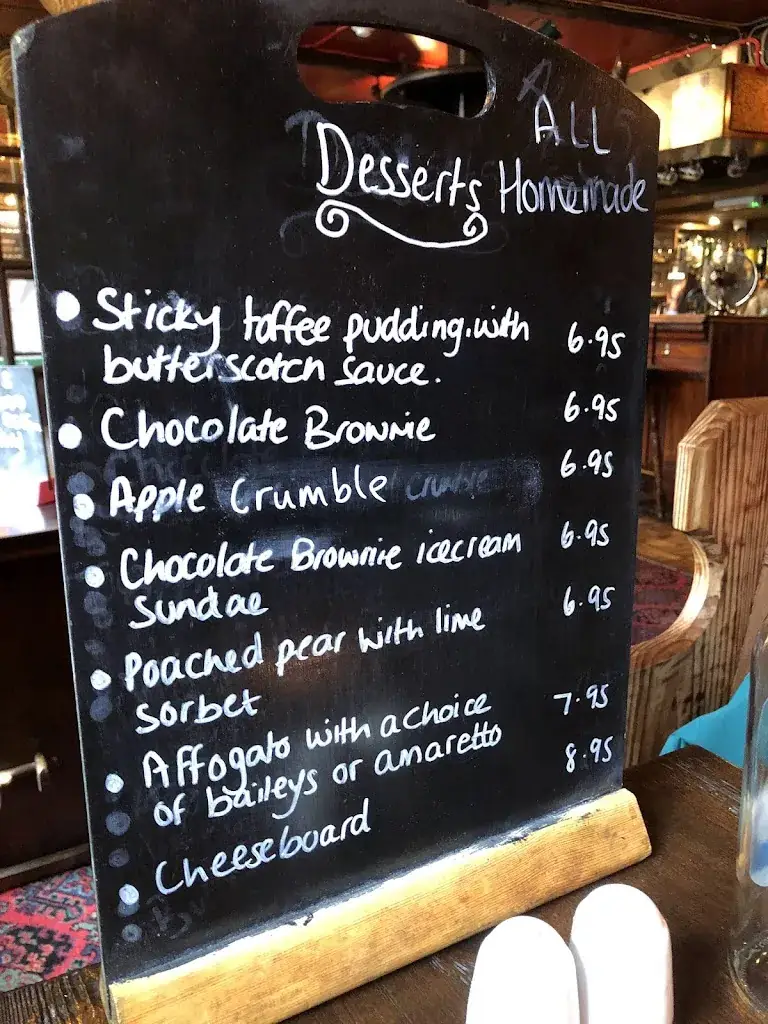 ALL
Desserts Homemade
• Sticky toffee pudding.with 6.95
butterscotch sauce.
• Chocolate Brownie 6.95
• Apple Crumble crumble 6.95
• Chocolate Brownie icecream 6.95
Sundae
• Poached pear with lime 6.95
sorbet
• Affogato with a choice 7.95
of baileys or amaretto
• Cheeseboard 8.95